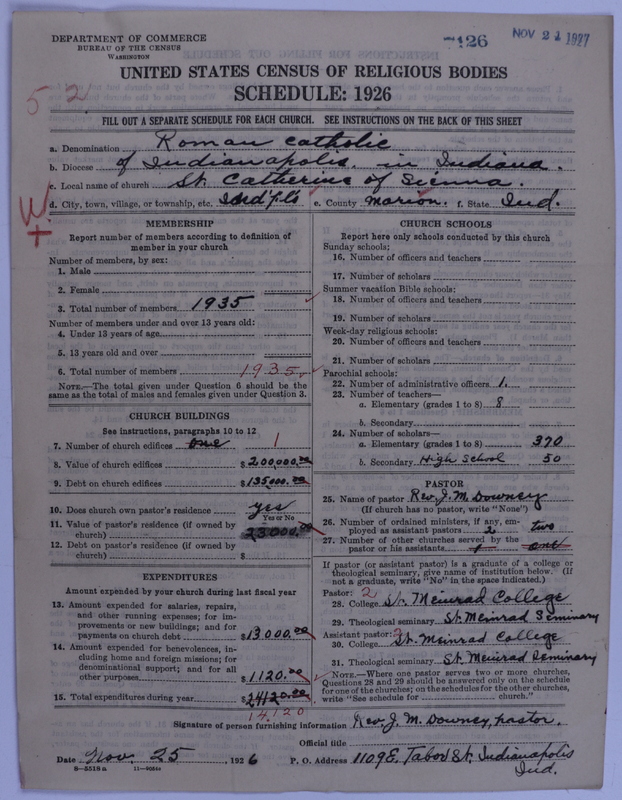 DEPARTMENT OF COMMERCE
BUREAU OF THE CENSUS
WASHINGTON
7126
NOV 21 1927
UNITED STATES CENSUS OF RELIGIOUS BODIES
SCHEDULE: 1926
52
FILL OUT A SEPARATE SCHEDULE FOR EACH CHURCH. SEE INSTRUCTIONS ON THE BACK OF THIS SHEET
a. Denomination Roman Catholic
b. Diocese of Indianapolis. in Indiana.
c. Local name of church St. Catherine of Sienna.
d. City, town, village, or township, etc. Ind'pl's e. County Marion. f. State Ind.
W
+
MEMBERSHIP
Report number of members according to definition of
member in your church
Number of members, by sex:
1. Male
2. Female
3. Total number of members 1935
Number of members under and over 13 years old:
4. Under 13 years of age
5. 13 years old and over
6. Total number of members 1935
NOTE.—The total given under Question 6 should be
same as the total of males and females given under Question 3.
CHURCH BUILDINGS
See instructions, paragraphs 10 to 12
7. Number of church edifices one 1
8. Value of church edifices $200,000.00
9. Debt on church edifices $135000.00
10. Does church own pastor's residence yes
Yes or No
11. Value of pastor's residence (if owned by
church) 23000.00
12. Debt on pastor's residence (if owned by
church) $
EXPENDITURES
Amount expended by your church during last fiscal year
13. Amount expended for salaries, repairs,
and other running expenses; for im-
provements or new buildings; and for
payments on church debt $13,000.00
14. Amount expended for benevolences, in-
cluding home and foreign missions; for
denominational support; and for all
other purposes $1120.00
15. Total expenditures during year $24120.00
14,120
CHURCH SCHOOLS
Report here only schools conducted by this church
Sunday schools:
16. Number of officers and teachers
17. Number of scholars
Summer vacation Bible schools:
18. Number of officers and teachers
19. Number of scholars
Week-day religious schools:
20. Number of officers and teachers
21. Number of scholars
Parochial schools:
22. Number of administrative officers 1.
23. Number of teachers—
a. Elementary (grades 1 to 8) 8
b. Secondary
24. Number of scholars—
a. Elementary (grades 1 to 8) 370
b. Secondary High School 50
PASTOR
25. Name of pastor Rev. J. M. Downey
(If church has no pastor, write "None")
26. Number of ordained ministers, if any, em-
ployed as assistant pastors 2 two
27. Number of other churches served by the
pastor or his assistants 1 one
If pastor (or assistant pastor) is a graduate of a college or
theological seminary, give name of institution below. (If
not a graduate, write "No" in the space indicated.)
Pastor: 2
28. College St. Meinrad College
29. Theological seminary St. Meinrad Seminary
Assistant pastor: 2
30. College St. Meinrad College
31. Theological seminary St. Meinrad Seminary
NOTE.—Where one pastor serves two or more churches,
Questions 28 and 29 should be answered only on the schedule
for one of the churches; on the schedules for the other churches,
write "See schedule for church."
Signature of person furnishing information Rev. J. M. Downey, pastor.
Official title
Date Nov. 25, 1926 P. O. Address 1109 E. Tabor St. Indianapolis
Ind.
8—5518a 11—9055